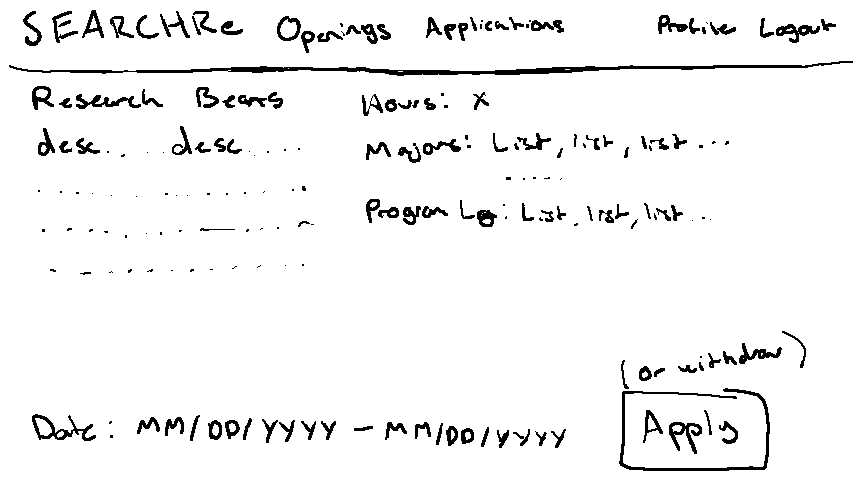 SEARCHRe Openings Applications Profile Logout
Research Bears
desc.. desc....
Hours: X
Majors: List, list, list...
.....
Program Lg: List, list, list...
(or withdraw)
Date: MM/DD/YYYY - MM/DD/YYYY
Apply